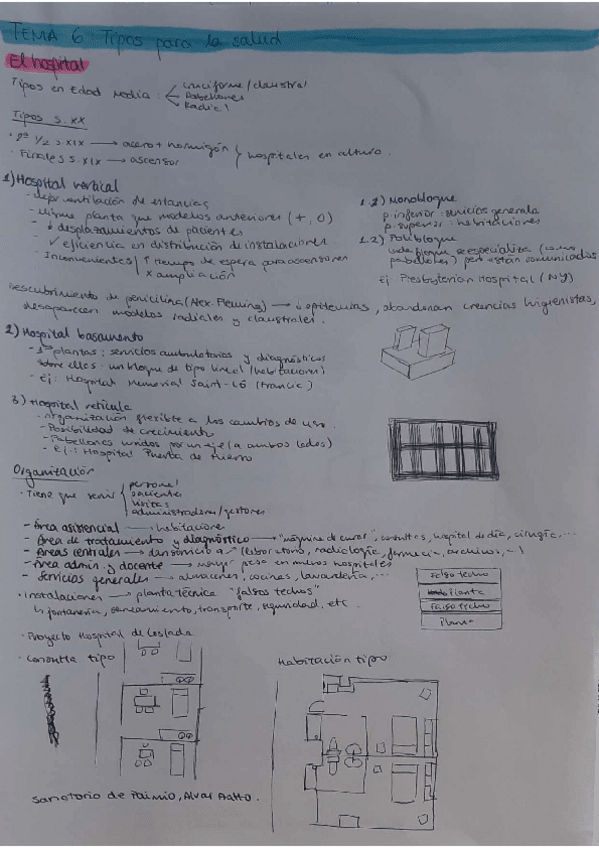 TEMA 6: Tipos para la salud
El hospital
Tipos en Edad Media: cruciforme/claustral
Pabellones
Radial
Tipos s. XX
· 2ª 1/2 s. XIX → acero + hormigón
· Finales s. XIX → ascensor
hospitales en altura.
1) Hospital vertical
- Mejor ventilación de estancias
- Misma planta que modelos anteriores (+, O)
- ↓ desplazamientos de pacientes
- ✓ eficiencia en distribución de instalaciones
- Inconvenientes ↑ tiempos de espera para ascensores
x ampliación
1.1) Monobloque
p. inferior: servicios generales
p. superior: habitaciones
1.2) Polibloque
cada bloque se especializa (como
pabellones) pero están comunicados
Ej: Presbyterian Hospital (NY)
Descubrimiento de penicilina (Alex. Fleming) → ↓ epidemias, abandonan creencias higienistas,
desaparecen modelos radiales y claustrales.
2) Hospital basamento
- 1as plantas: servicios ambulatorios y diagnósticos
sobre ellos: un bloque de tipo lineal (habitaciones)
- Ej: Hospital Memorial Saint-Lô (France)
3) Hospital retícula
- organización flexible a los cambios de uso.
- Posibilidad de crecimiento
- Pabellones unidos por un eje (a ambos lados)
- Ej.: Hospital Puerta de Hierro
Organización
· Tiene que servir personal
pacientes
visitas
administradores/gestores
- Área asistencial → habitaciones
- Área de tratamiento y diagnóstico → "máquina de curar", consultas, hospital de día, cirugía, ...
- Áreas centrales → dan servicio a (laboratorio, radiología, farmacia, archivos, ...)
- Área admin y docente → mayor peso en muchos hospitales
- Servicios generales → almacenes, cocinas, lavandería, ...
· instalaciones → planta técnica "falsos techos"
fontanería, saneamiento, transporte, seguridad, etc
falso techo
planta
falso techo
planta
· Proyecto Hospital de Coslada
· Consulta tipo
Habitación tipo
Sanatorio de Paimio, Alvar Aalto.